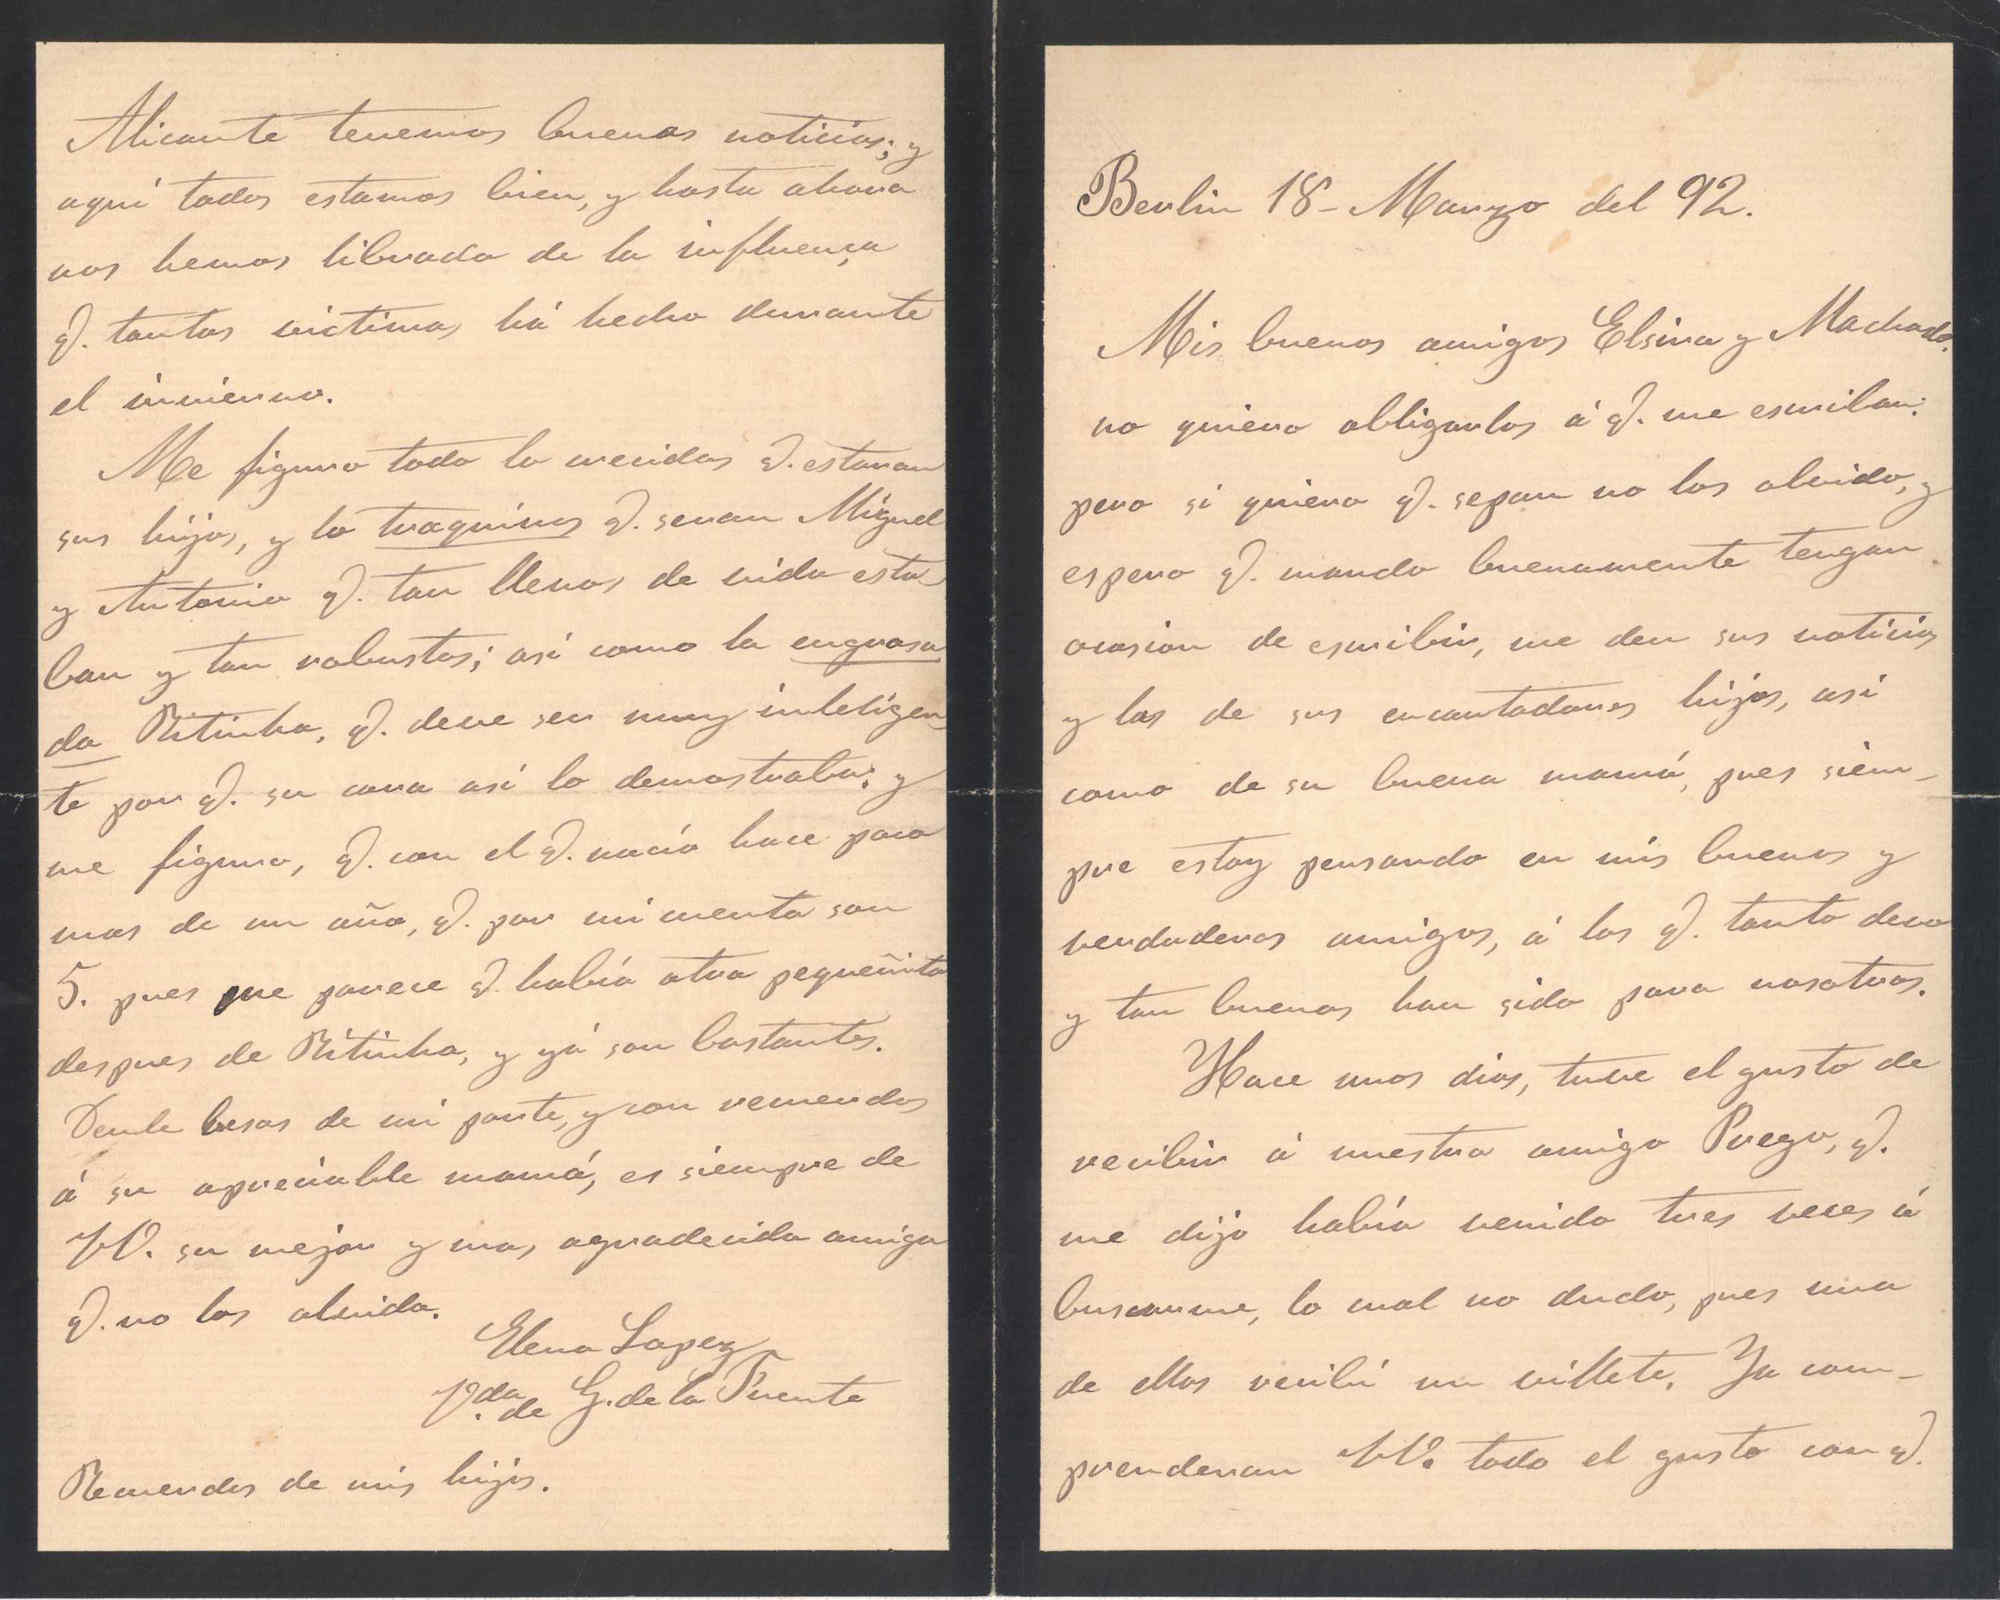 Berlin 18 - Marzo del 92.
Mis buenos amigos Elsina y Machado.
no quiero obligarlos á q. me escriban;
pero si quiero q. sepan no los olvido, y
espero q. cuando buenamente tengan
ocasion de escribir, me den sus noticias
y las de sus encantadores hijos, asi
como de su buena mamá, pues siem-
pre estoy pensando en mis buenos y
verdaderos amigos, á los q. tanto devo
y tan buenos han sido para nosotros.
Hace unos dias, tuve el gusto de
recibir á nuestro amigo Prego, q.
me dijo había venido tres veces á
buscarme, lo cual no dudo, pues una
de ellas recibí un villete. Ya com-
prenderan VV. todo el gusto con q.
Alicante tenemos buenas noticias; y
aquí todos estamos bien, y hasta ahora
nos hemos librado de la influença
q. tantas victimas há hecho durante
el invierno.
Me figuro todo lo crecidos q. estaran
sus hijos, y lo traquinos q. seran Miguel
y Antonio q. tan llenos de vida esta
ban y tan robustos; asi como la engrasa
da Ritinha, q. deve ser muy inteligen
te por q. su cara asi lo demostraba; y
me figuro, q. con el q. nacío hace poco
mas de un año, q. por mi cuenta son
5. pues me parece q. había otra pequeñita
despues de Ritinha, y yá son bastantes.
Denle besos de mi parte, y con recuerdos
á su apreciable mamá, es siempre de
VV. su mejor y mas agradecida amiga
q. no los olvida.
Elena Lopez
V.da de G. de la Puente
Recuerdos de mis hijos.